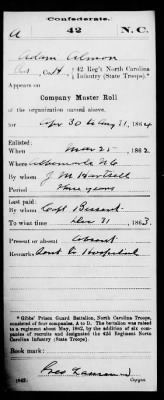 Confederate.
A 42 N.C.
Adam Almon
Co. H, 42 Reg't North Carolina
Infantry (State Troops).*
Appears on
Company Muster Roll
of the organization named above,
for Apr 30 to Aug 31, 1864
Enlisted:
When Mar 25, 1862
Where Albemarle N.C.
By whom J. M. Hartsell
Period three years
Last paid:
By whom Capt
To what time Dec 31, 1863
Present or absent Absent
Remarks Sent to Hospital
*Gibbs' Prison Guard Battalion, North Carolina Troops,
consisted of four companies, A to D. The battalion was
raised to a regiment about May, 1862, by the addition of six com-
panies of recruits and designated the 42d Regiment North
Carolina Infantry (State Troops).
Book mark:
Copyist.